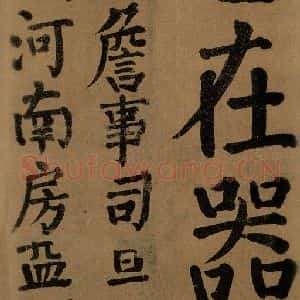 在器
詹事司旦
河南房
Shufawang.CN